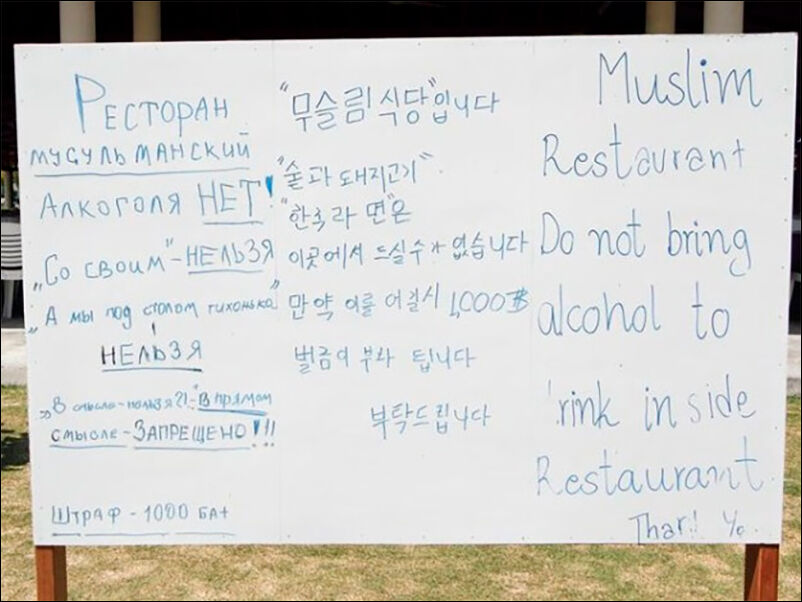 Ресторан
мусульманский
Алкоголя НЕТ!
„Со своим" - НЕЛЬЗЯ
„А мы под столом тихонько"
НЕЛЬЗЯ
„В смысле - нельзя?!" - В прямом
смысле - ЗАПРЕЩЕНО!!!
Штраф - 1000 бат
"무슬림식당"입니다
"술과 돼지고기"
"한국라면"은
이곳에서 드실수가 없습니다
만약 이를 어길시 1,000฿
벌금이 부과 됩니다
부탁드립니다
Muslim
Restaurant
Do not bring
alcohol to
rink inside
Restaurant